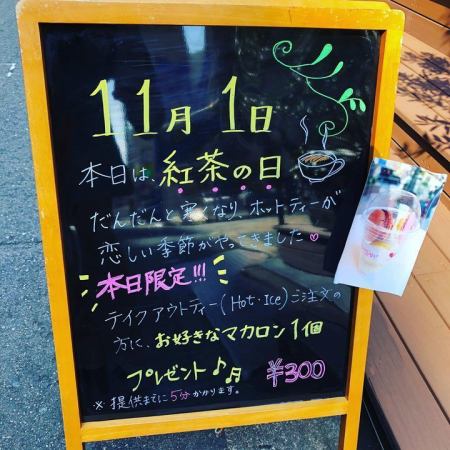 11月1日
本日は、紅茶の日
だんだんと寒くなり、ホットティーが
恋しい季節がやってきました♡
本日限定!!!
テイクアウトティー(Hot・Ice)ご注文の
方に、お好きなマカロン1個
プレゼント♪♬ ¥300
※提供までに5分かかります。